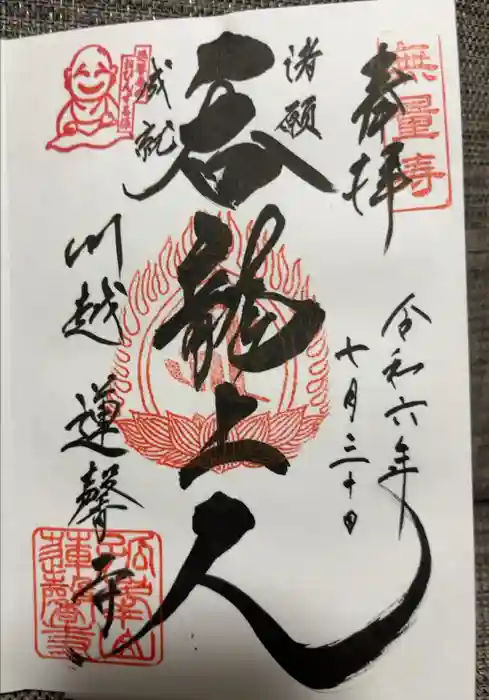 無量寿寺
奉拝
令和六年
七月三十日
諸願
成就
呑龍上人
川越
蓮馨寺